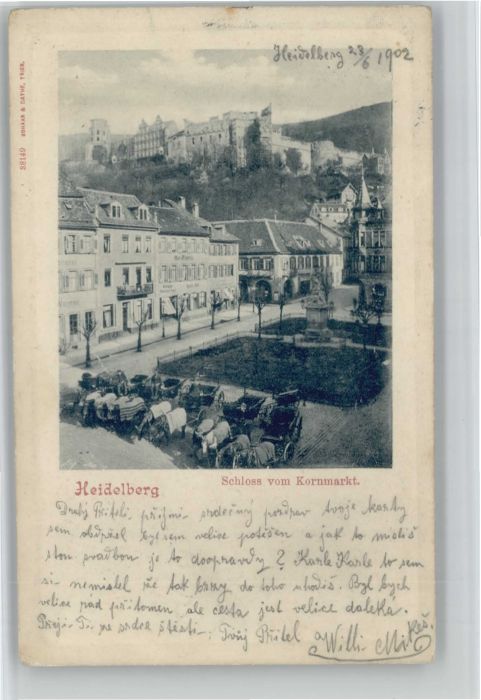 Heidelberg 23/6 1902
38149 SCHAAR & DATHE, TRIER.
Heidelberg
Schloss vom Kornmarkt.
Drahý Příteli, přijmi srdečný pozdrav tvoje karty
sem obdržel byl sem velice potěšen a jak to myslíš
svadbou je to doopravdy? Karle Karle to sem
si nemislel že tak brzy do toho Byl bych
velice rad přitomen ale cesta jest velice daleka.
Přeji Ti ze srdce štěsti. Tvůj Přitel Willi